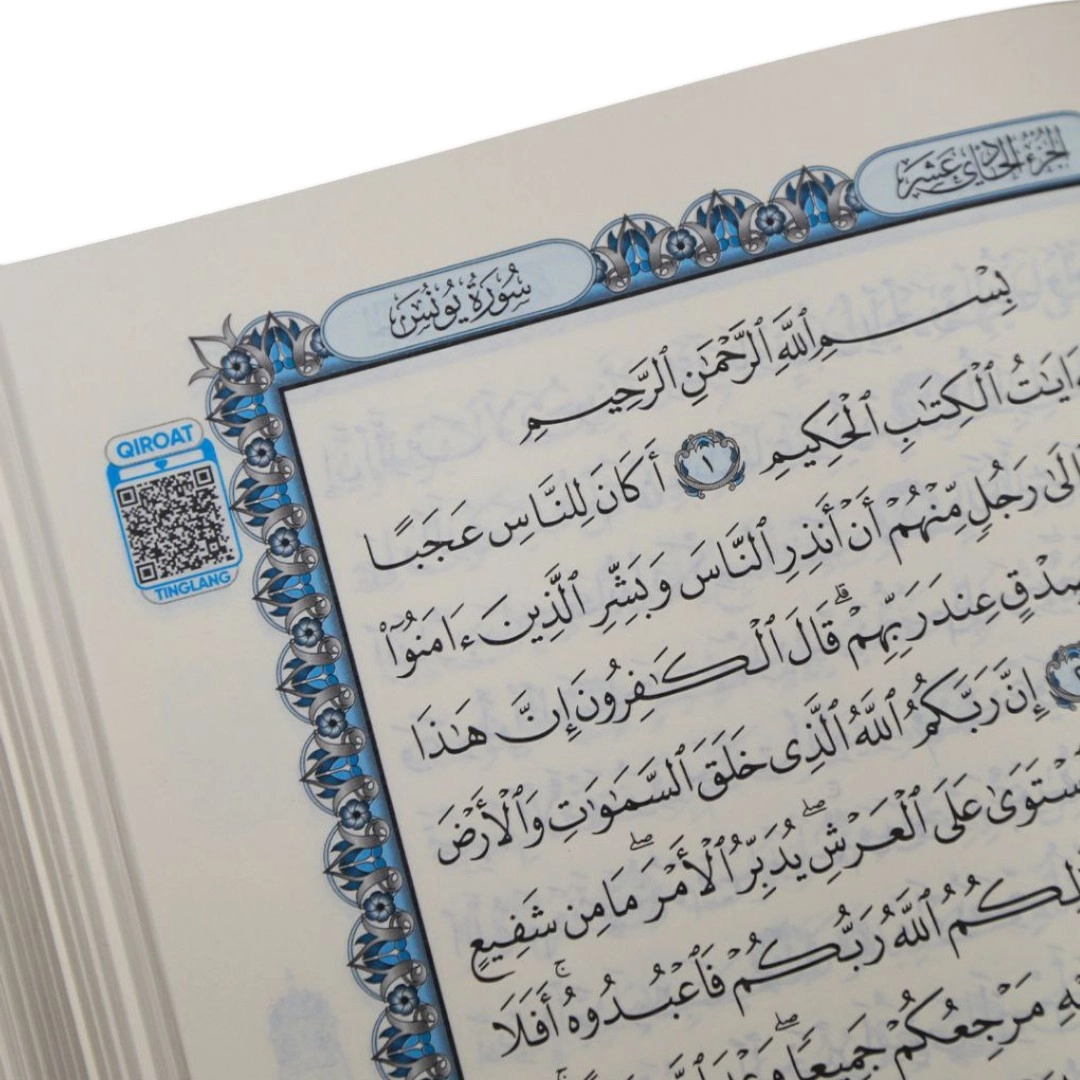 الجزء الحادي عشر
سورة يونس
QIROAT
TINGLANG
بِسْمِ ٱللَّهِ ٱلرَّحْمَٰنِ ٱلرَّحِيمِ
ءَايَٰتُ ٱلْكِتَٰبِ ٱلْحَكِيمِ ١ أَكَانَ لِلنَّاسِ عَجَبًا
إِلَىٰ رَجُلٍ مِّنْهُمْ أَنْ أَنذِرِ ٱلنَّاسَ وَبَشِّرِ ٱلَّذِينَ ءَامَنُوٓا۟
صِدْقٍ عِندَ رَبِّهِمْ ۗ قَالَ ٱلْكَٰفِرُونَ إِنَّ هَٰذَا
إِنَّ رَبَّكُمُ ٱللَّهُ ٱلَّذِى خَلَقَ ٱلسَّمَٰوَٰتِ وَٱلْأَرْضَ
ٱسْتَوَىٰ عَلَى ٱلْعَرْشِ ۖ يُدَبِّرُ ٱلْأَمْرَ ۖ مَا مِن شَفِيعٍ
ذَٰلِكُمُ ٱللَّهُ رَبُّكُمْ فَٱعْبُدُوهُ ۚ أَفَلَا
مَرْجِعُكُمْ جَمِيعًا ۖ وَعْدَ ٱللَّهِ